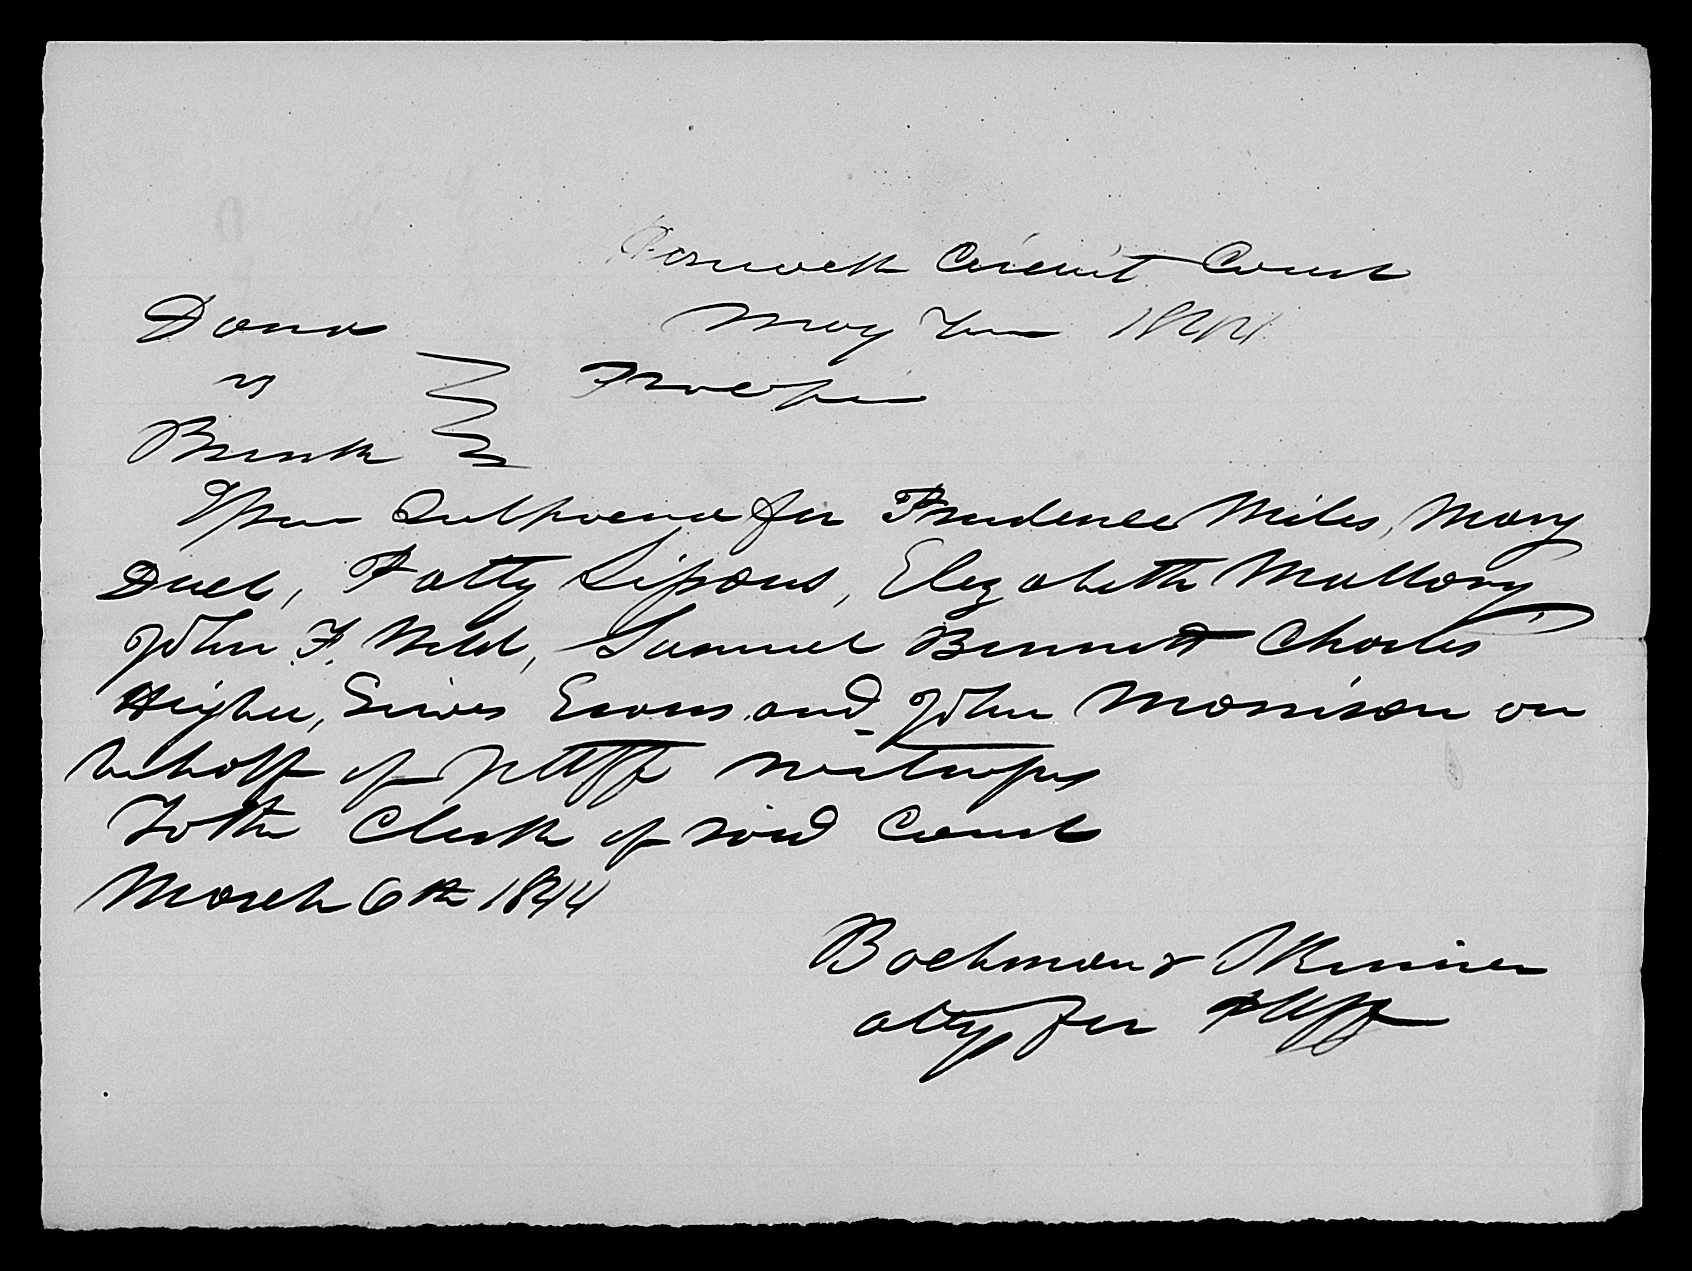 Circuit Court
May Term 1844
Dana
vs
Brush
Issue Subpoena for Prudence Miles, Mary
Duel, Patty Sissons, Elizabeth Mallory
John F. Weld, Samuel Bennett Charles
Higbee, Evans and John Morrison on
behalf of pltff witnesses
To the Clerk of said Court
March 6th 1844
Bachman & Skinner
atty for pltff